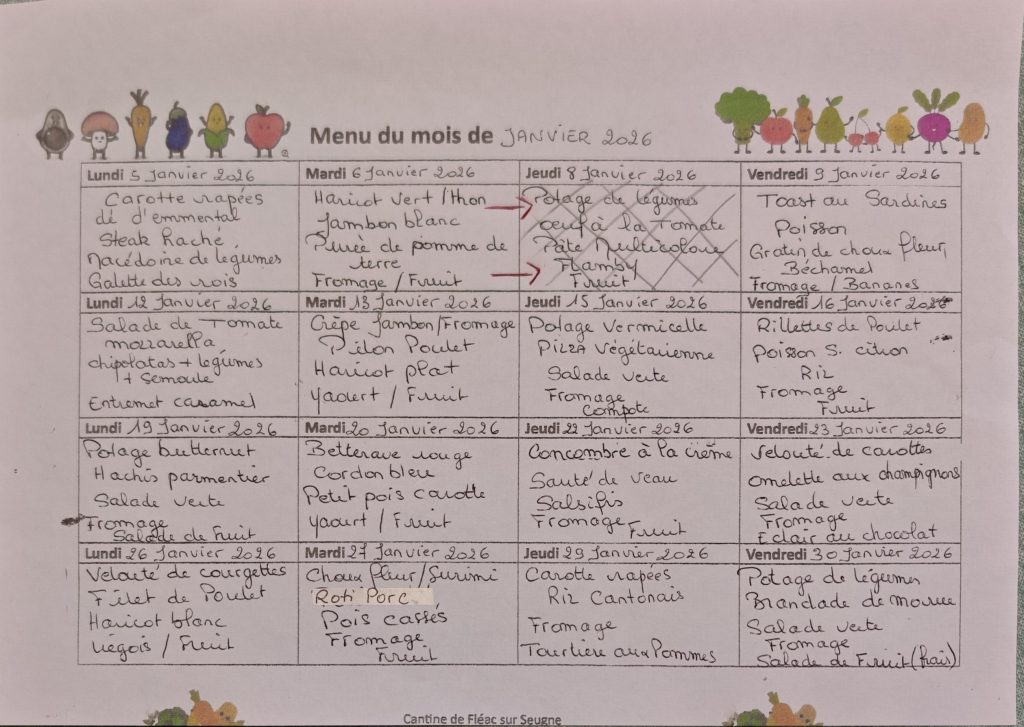 Menu du mois de JANVIER 2026
Lundi 5 Janvier 2026
Carotte rapées
dé d'emmental
Steak Haché
Macédoine de légumes
Galette des rois
Mardi 6 Janvier 2026
Haricot vert / thon
Jambon blanc
Purée de pomme de
terre
Fromage / Fruit
Jeudi 8 Janvier 2026
Potage de légumes
oeuf à la Tomate
Pâte Multicolore
Flamby
Fruit
Vendredi 9 Janvier 2026
Toast au Sardines
Poisson
Gratin de choux fleur,
Béchamel
Fromage / Bananes
Lundi 12 Janvier 2026
Salade de Tomate
mozzarella
chipolatas + légumes
+ Semoule
Entremet caramel
Mardi 13 Janvier 2026
Crêpe Jambon/Fromage
Pilon Poulet
Haricot plat
Yaourt / Fruit
Jeudi 15 Janvier 2026
Potage Vermicelle
Pizza Végétarienne
Salade verte
Fromage
Compote
Vendredi 16 Janvier 2026
Rillettes de Poulet
Poisson S. citron
Riz
Fromage
Fruit
Lundi 19 Janvier 2026
Potage butternut
Hachis parmentier
Salade verte
Fromage
Salade de Fruit
Mardi 20 Janvier 2026
Betterave rouge
Cordon bleu
Petit pois carotte
Yaourt / Fruit
Jeudi 22 Janvier 2026
Concombre à la crème
Sauté de veau
Salsifis
Fromage
Fruit
Vendredi 23 Janvier 2026
Velouté de carottes
omelette aux champignons
Salade verte
Fromage
Eclair au chocolat
Lundi 26 Janvier 2026
Velouté de courgettes
Filet de Poulet
Haricot blanc
Liégois / Fruit
Mardi 27 Janvier 2026
Choux fleur / Surimi
Roti Porc
Pois cassés
Fromage
Fruit
Jeudi 29 Janvier 2026
Carotte rapées
Riz Cantonais
Fromage
Tourtière aux Pommes
Vendredi 30 Janvier 2026
Potage de légumes
Brandade de morue
Salade verte
Fromage
Salade de Fruit (frais)
Cantine de Fléac sur Seugne